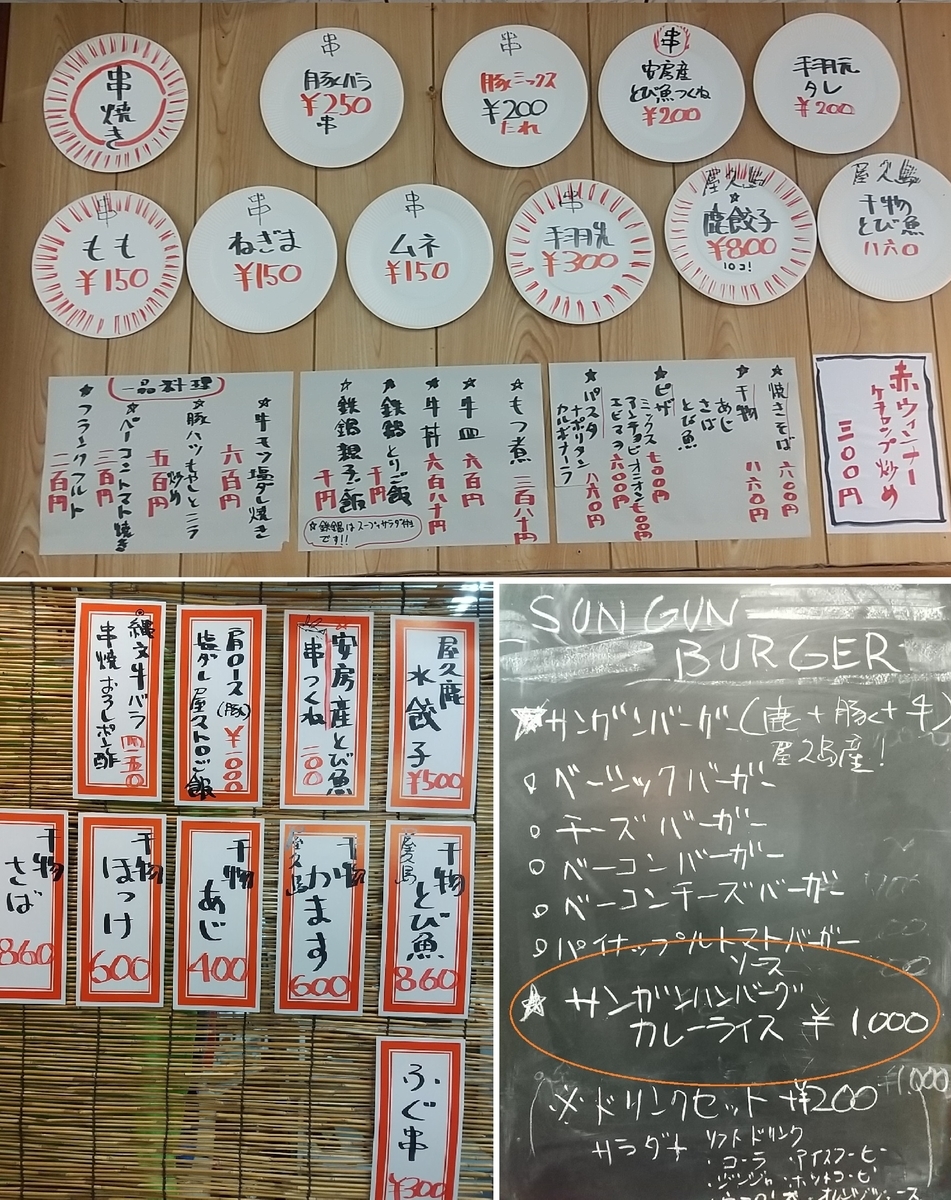 串焼き
串
豚バラ
¥250
串
串
豚ミックス
¥200
たれ
串
安房産
とび魚つくね
¥200
手羽元
タレ
¥200
串
もも
¥150
串
ねぎま
¥150
串
ムネ
¥150
串
手羽先
¥300
屋久島
☆
鹿餃子
¥800
10コ!
屋久島
干物
とび魚
八六〇
一品料理
★牛モツ塩ダレ焼き
六百円
★豚ハツもやしとニラ
炒め
五百円
★ベーコントマト焼き
三百円
★フランクフルト
二百円
☆もつ煮
三百八十円
☆牛皿
六百円
☆牛丼
六百八十円
☆鉄鍋とりご飯
千円
☆鉄鍋親子ご飯
千円
☆鉄鍋はスープ、サラダ付き
です!!
★焼きそば
六〇〇円
★干物
八六〇円
あじ
さば
とび魚
★ピザ
ミックス七〇〇円
アンチョビオニオン七〇〇円
エビマヨ六〇〇円
★パスタ
ナポリタン
カルボナーラ
八六〇円
赤ウィンナー
ケチャップ炒め
三〇〇円
縄文牛バラ
串焼おろしポン酢
四五〇
肩ロース(豚)
塩ダレ屋ストロご飯
安房産とび魚
串つくね
二〇〇
屋久鹿
水餃子
¥500
干物
さば
860
干物
ほっけ
600
干物
あじ
400
干物
屋久島
かます
600
干物
屋久島
とび魚
860
ふぐ串
¥300
SUN GUN
BURGER
★サングンバーグー(鹿+豚+牛)
屋久島産!
○ベーシックバーガー
○チーズバーガー
○ベーコンバーガー
○ベーコンチーズバーガー
○パイナップルトマトバーガー
ソース
☆サンガンハンバーグ
カレーライス ¥1.000
¥1.000
※ドリンクセット+¥200
サラダ+
ソフトドリンク
・コーラ ・アイスコーヒー
・ジンジャ ・ホットコーヒー